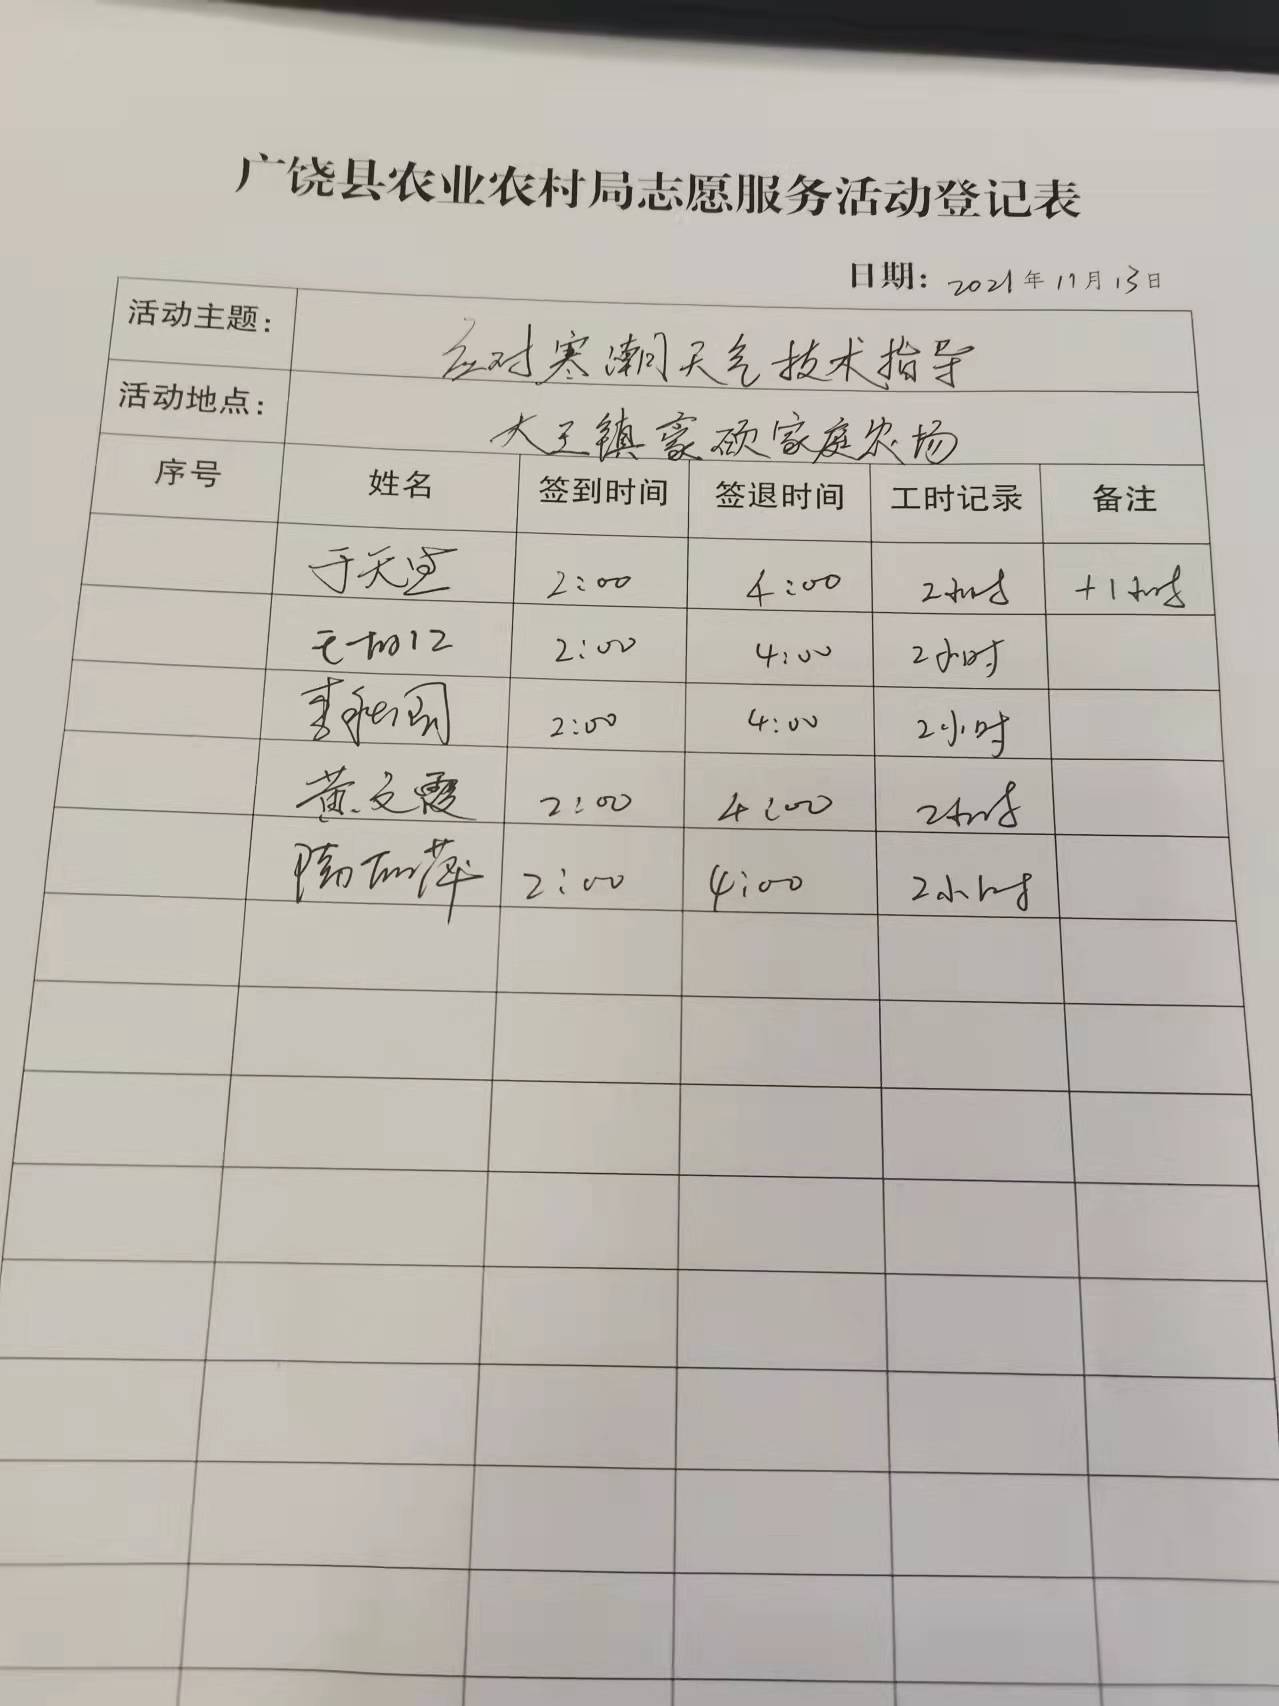 广饶县农业农村局志愿服务活动登记表
日期: 2021年11月13日
活动主题: 应对寒潮天气技术指导
活动地点: 大王镇豪硕家庭农场
序号 姓名 签到时间 签退时间 工时记录 备注
2:00 4:00 2小时 +1小时
2:00 4:00 2小时
2:00 4:00 2小时
黄文霞 2:00 4:00 2小时
2:00 4:00 2小时